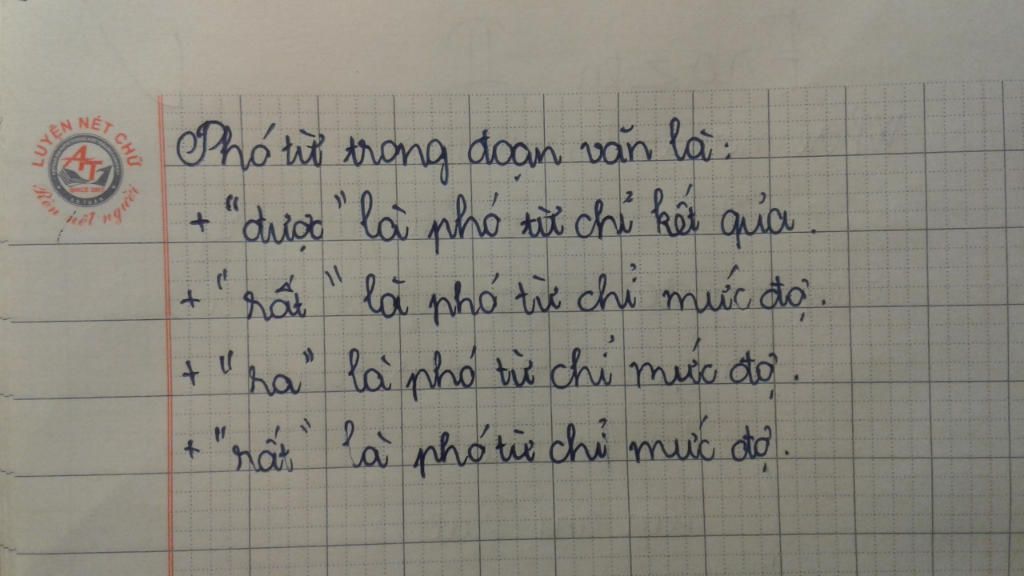 LUYỆN NÉT CHỮ
AT
Rèn nết người
Phó từ trong đoạn văn là:
+ "được" là phó từ chỉ kết quả.
+ "rất" là phó từ chỉ mức độ.
+ "ra" là phó từ chỉ mức độ.
+ "rất" là phó từ chỉ mức độ.